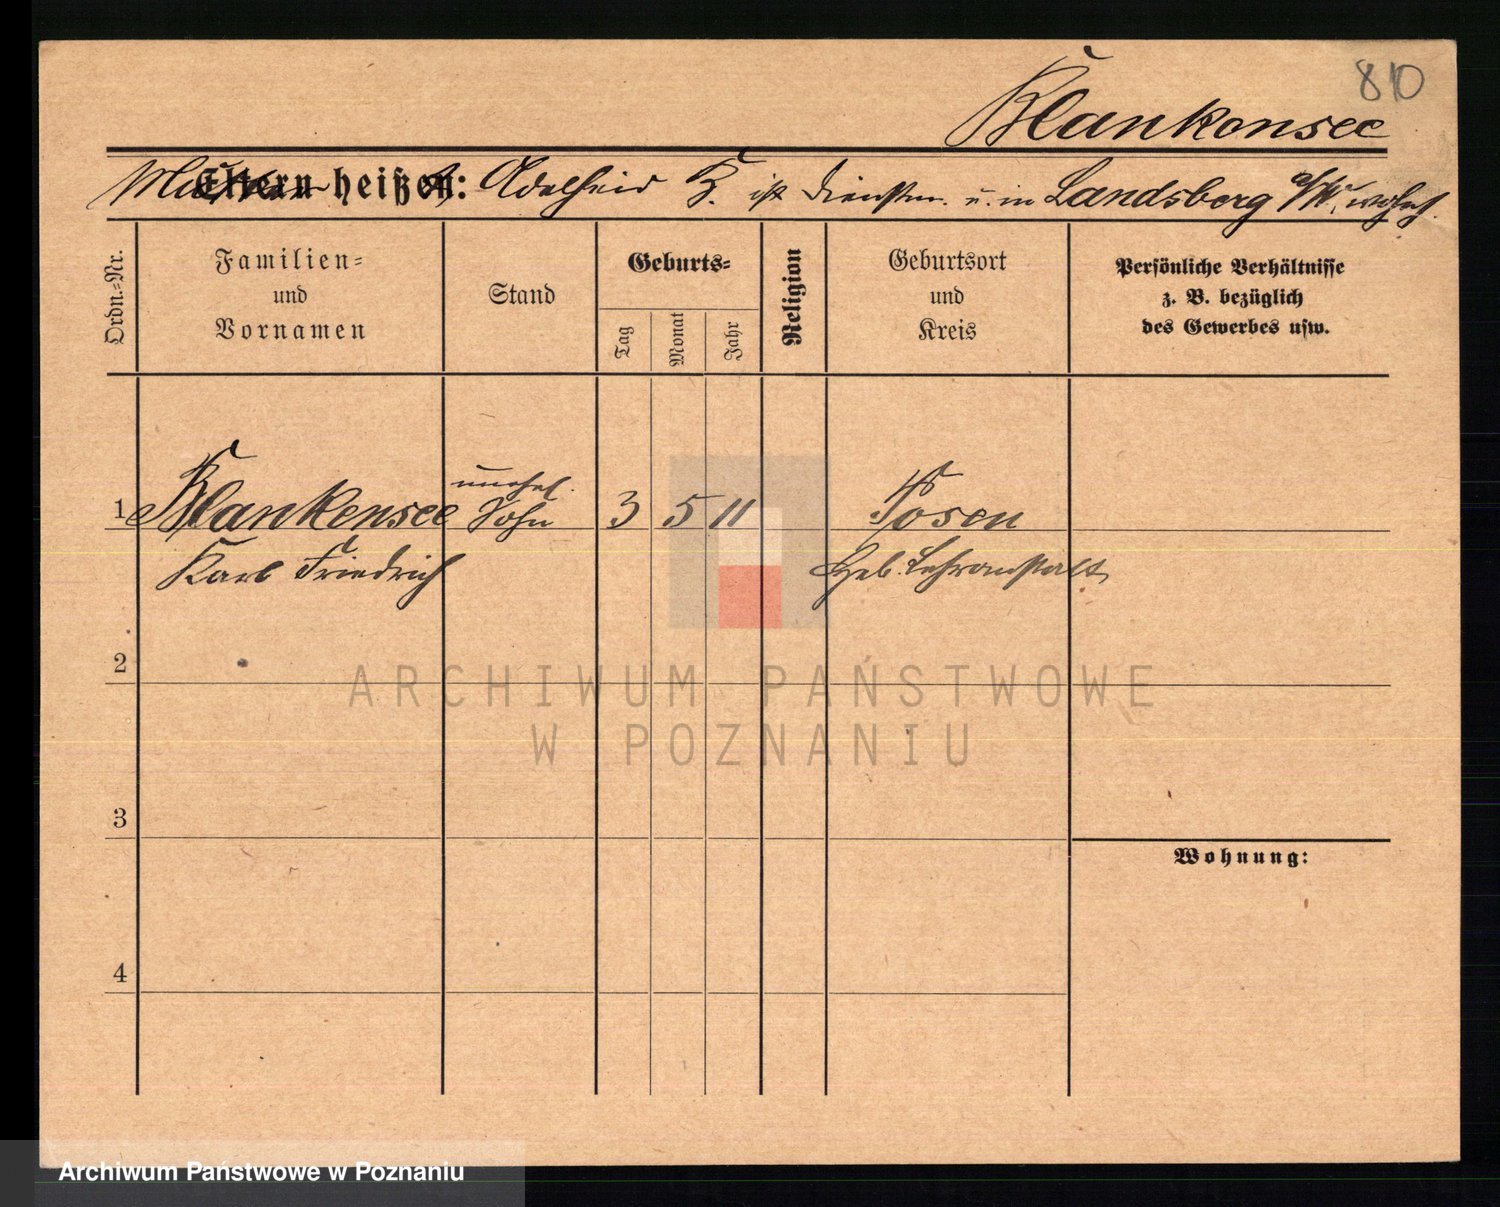 810
Blankensee
Mutter heißt: Adelheid B. ist Dienstm. u. in Landsberg a/W. wohnh.
Ordn.-Nr.
Familien-
und
Vornamen
Stand
Geburts-
Tag
Monat
Jahr
Religion
Geburtsort
und
Kreis
Persönliche Verhältnisse
z. B. bezüglich
des Gewerbes usw.
unehel.
1 Blankensee Sohn 3 5 11 Posen
Karl Friedrich Heb. Lehranstalt
2
3
Wohnung:
4
ARCHIWUM PAŃSTWOWE
W POZNANIU
Archiwum Państwowe w Poznaniu